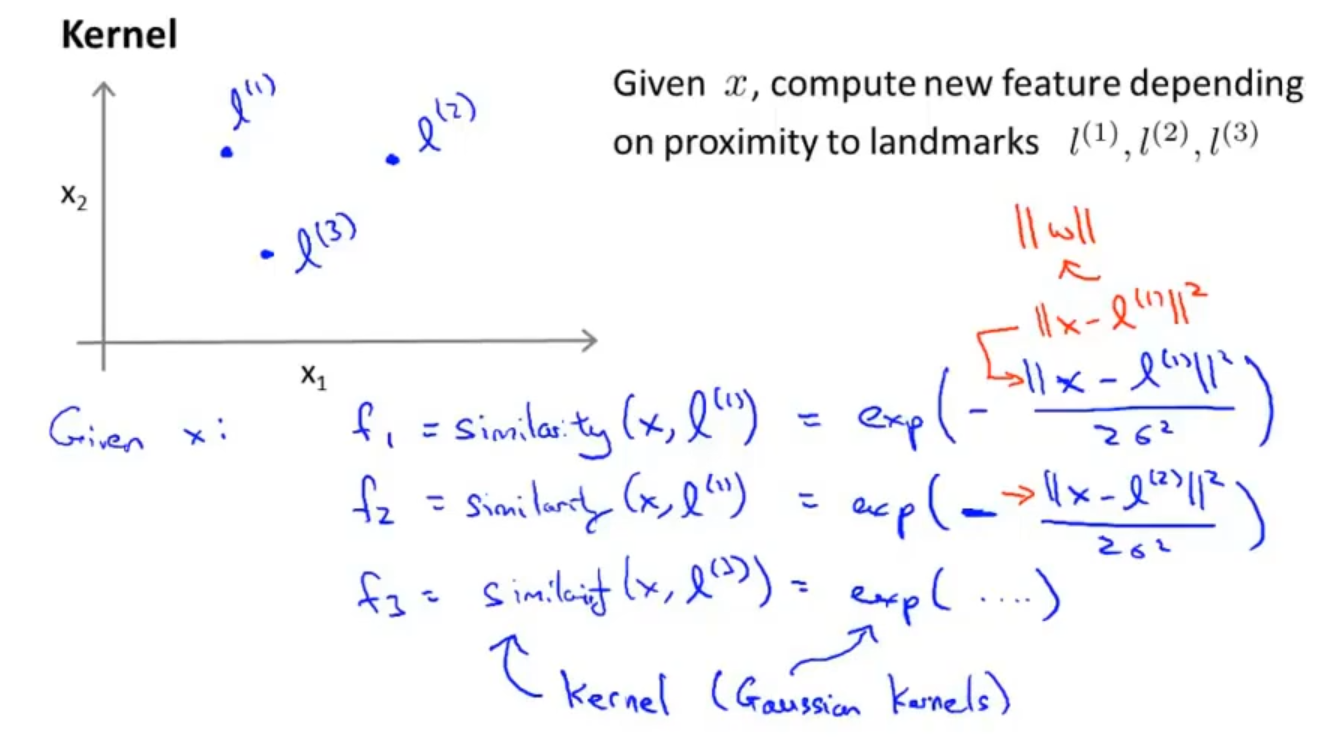 Kernel
l⁽¹⁾
l⁽²⁾
l⁽³⁾
x₂
x₁
Given x, compute new feature depending
on proximity to landmarks l⁽¹⁾, l⁽²⁾, l⁽³⁾
||w||
||x - l⁽¹⁾||²
Given x: f₁ = similarity (x, l⁽¹⁾) = exp(- ||x - l⁽¹⁾||² / 2σ²)
f₂ = similarity (x, l⁽¹⁾) = exp(- ||x - l⁽²⁾||² / 2σ²)
f₃ = similarity (x, l⁽³⁾) = exp( ....)
Kernel (Gaussian Kernels)